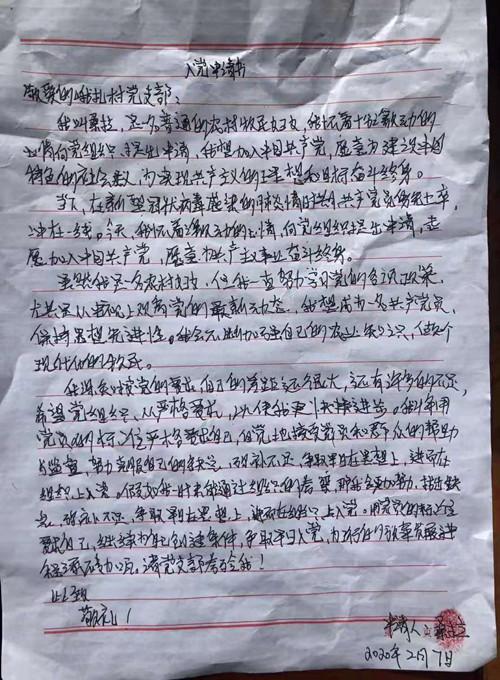 入党申请书
敬爱的 扎村党支部：
我叫桑拉，是一名普通的农村牧民妇女，我怀着十分激动的
心情向党组织提出申请，我想加入中国共产党，愿意为建设中国
特色的社会 ，为实现共产主义的理想和目标奋斗终身。
当下，在新型冠状病毒感染的肺炎疫情时期，共产党员
冲在一线。今天，我怀着激动的心情，向党组织提出申请，志
愿加入中国共产党，愿意为共产主义事业奋斗终身。
虽然我是一名农村妇女，但我一直努力学习党的各项政策，
尤其是从 上观看党的最新动态，我想成为一名共产党员，
保持思想先进性。我会不断加强自己的农业知识，做个
现代化的牧民。
我深知按党的要求，自己的差距还很大，还有许多的不足，
希望党组织，从严格要求，以使我更快接进步。我将用
党员的标准严格要求自己，自觉地接受党员和群众的帮助
与监督，努力克服自己的缺点，弥补不足，争取早日在思想上，进而在
组织上入党。假如我 未能通过组织的考察，那我会更加努力，找出缺
点，弥补不足，争取早日在思想上，进而在组织上入党。用党员的标准
要求自己，继续 创造条件，争取早日入党，为 故事发展进
程 不 力。请党支部考验我！
此致
敬礼！
申请人：桑拉
2020年2月7日